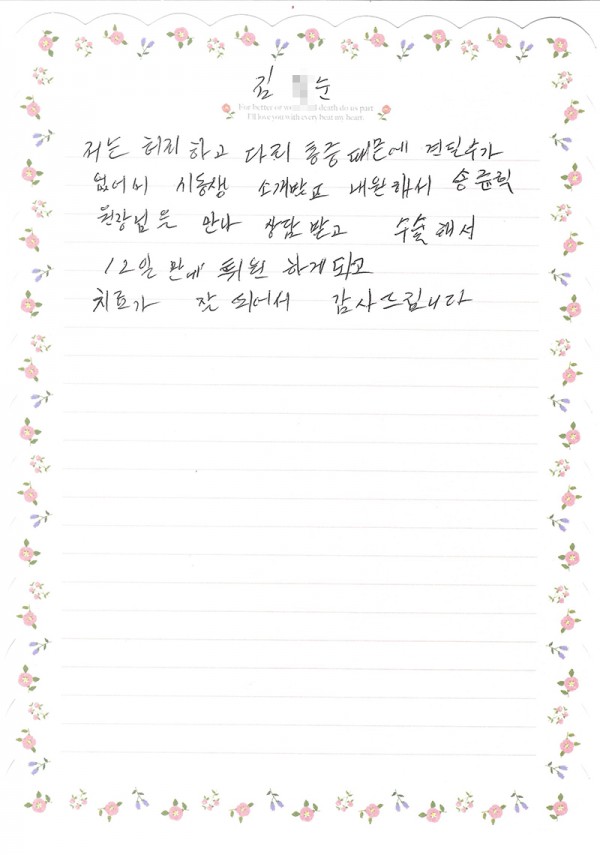 김 순
For better or wo till death do us part
I'll love you with every beat my heart.
저는 허리 하고 다리 통증 때문에 견딜수가
없어서 시동생 소개받고 내원해서 송
원장님은 만나 상담 받고 수술해서
12일 만에 퇴원 하게되고
치료가 잘 되어서 감사드립니다